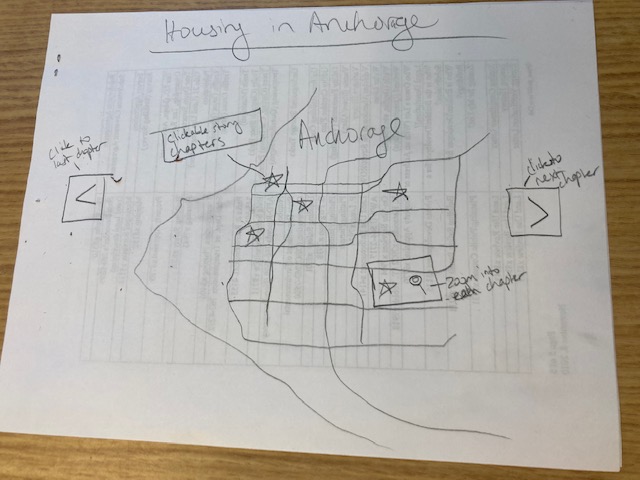 Housing in Anchorage
Clickable story
chapters
Anchorage
click to
last chapter
<
click to
next
chapter
>
zoom into
each chapter